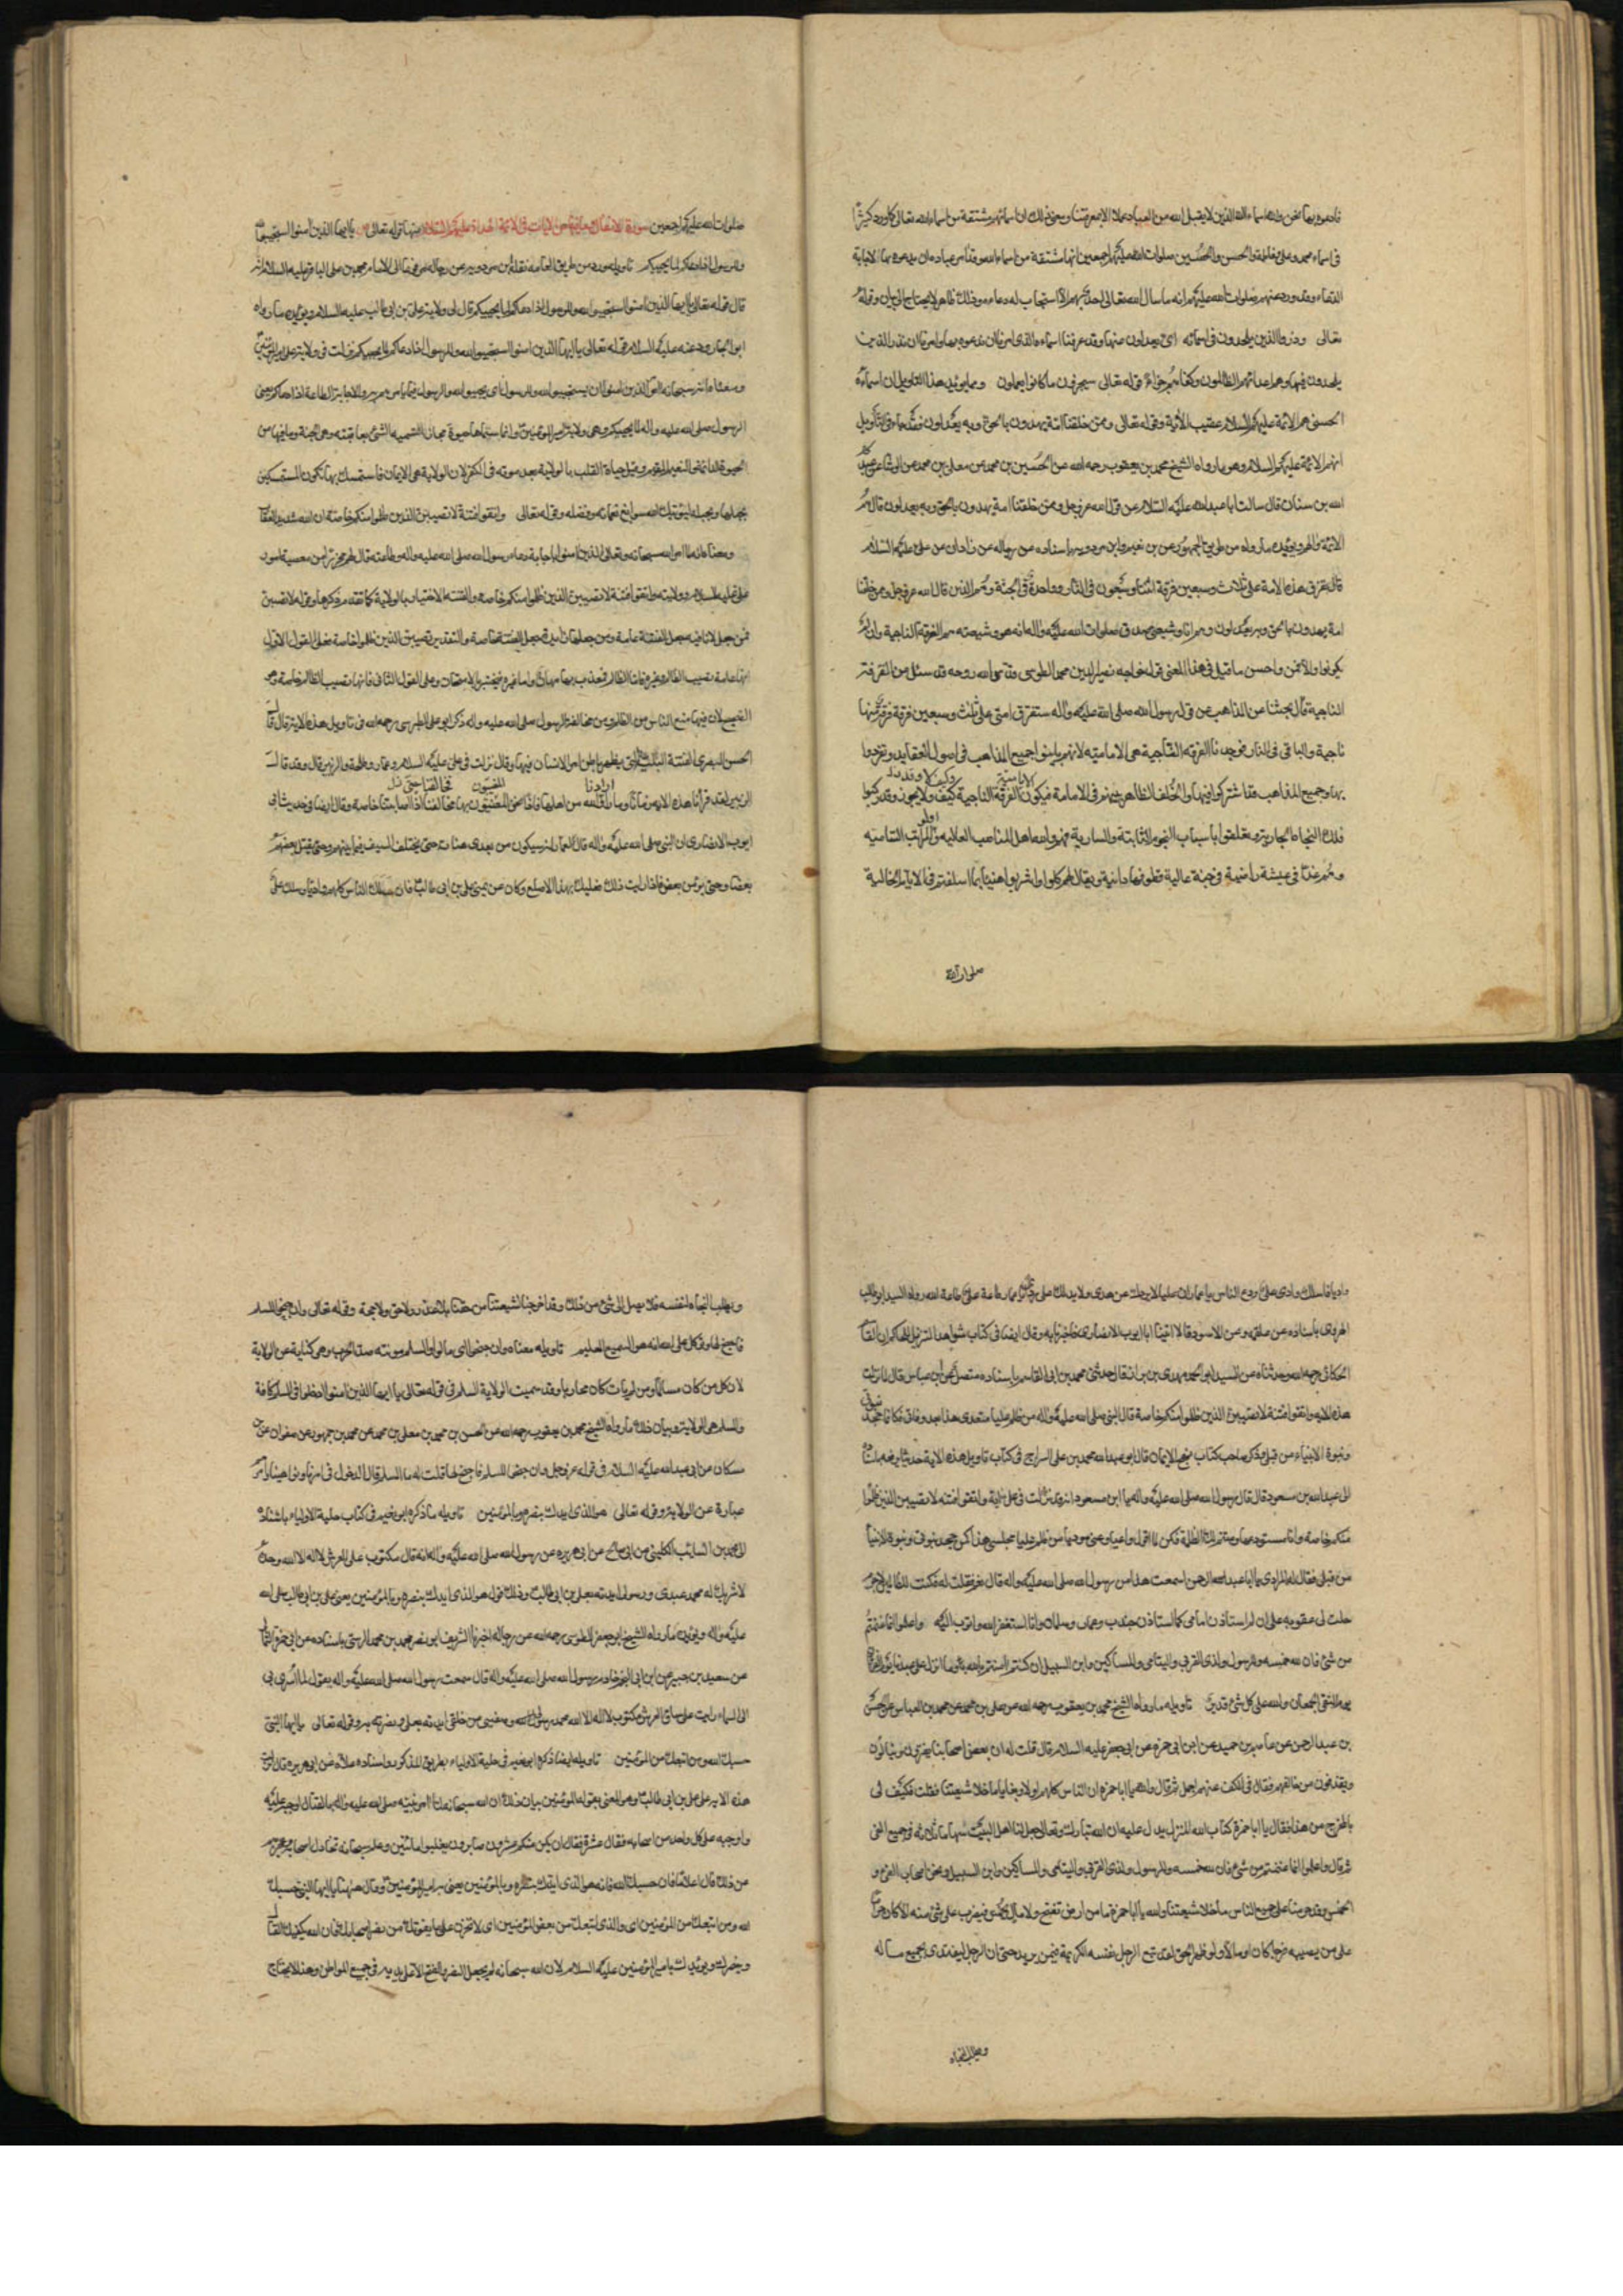 فادعوه بها نحن والله اسماء الله الذين لا يقبل الله من العباد عملا الا بمعرفتنا ومعنى ذلك ان اسمائهم مشتقة من اسماء الله تعالى كما ورد كثيرا
فى اسماء محمد وعلى وفاطمة والحسن والحسين صلوات الله عليهم اجمعين انها مشتقة من اسماء الله وقد امر عباده ان يدعوه بها الاجابة
الدعاء وقد ورد عنهم صلوات الله عليهم انه ما سال الله تعالى احد بهم الا استجاب له دعاءه وذلك ظاهر لا يحتاج الى بيان وقوله
تعالى وذروا الذين يلحدون فى اسمائه اى يعدلون عنها وقد عرفنا اسماءه الذى امرنا ان ندعوه بها وامرنا ان نذر الذين
يلحدون فيها وهم اعدائهم الظالمون وكفاهم جزاء قوله تعالى سيجزون ما كانوا يعملون ومما يؤيد هذا التاويل ان اسماءه
الحسنى هم الائمة عليهم السلام عقيب الآية وقوله تعالى وممن خلقنا امة يهدون بالحق وبه يعدلون فقد جاء فى التأويل
انهم الائمة عليهم السلام وهو ما رواه الشيخ محمد بن يعقوب رحمه الله عن الحسين بن محمد عن معلى بن محمد عن الوشا عن عبد
الله بن سنان قال سالت ابا عبد الله عليه السلام عن قول الله عز وجل وممن خلقنا امة يهدون بالحق وبه يعدلون قال هم
الائمة ويؤيده ما رواه من طريق الجمهور عن بن مردويه باسناده عن رجاله عن زاذان عن على عليه السلام
قال تفترق هذه الامة على ثلاث وسبعين فرقة اثنتان وسبعون فى النار وواحدة فى الجنة وهم الذين قال الله عز وجل وممن خلقنا
امة يهدون بالحق وبه يعدلون وهم انا وشيعتى صدق صلوات الله عليه واله انه هو وشيعته هم الفرقة الناجية وان لم
يكونوا والا فمن واحسن ما قيل فى هذا المعنى قول خواجه نصير الدين محمد الطوسى قدس الله روحه وقد سئل عن الفرقة
الناجية قال بحثنا عن المذاهب عن قول رسول الله صلى الله عليه واله ستفرق امتى على ثلث وسبعين فرقة فرقة منها
ناجية والباقى فى النار فوجدنا الفرقة الناجية هى الامامية لانهم باينوا جميع المذاهب فى اصول العقايد وتفردوا
بها وجميع المذاهب قد اشتركوا فيها والخلف الظاهر بينهم فى الامامة فيكون الفرقة الناجية كيف لا يكون وقد ركبوا
فلك النجاة الجارية وتعلقوا باسباب النجوم الثابتة والسارية فهم والله اهل المناصب العالية والمراتب السامية
وهم غدا فى عيشة راضية فى جنة عالية قطوفها دانية ويقال لهم كلوا واشربوا هنيئا بما اسلفتم فى الايام الخالية
صلوات الله
صلوات الله عليهم اجمعين سورة الانفال وما فيها من الايات فى الائمة الهداة عليهم السلام منها قوله تعالى يا ايها الذين امنوا استجيبوا لله
وللرسول اذا دعاكم لما يحييكم تاويله ورد من طريق العامة نقله ابن مردويه عن رجاله مرفوعا الى الامام محمد بن على الباقر عليه السلام انه
قال قوله تعالى يا ايها الذين امنوا استجيبوا لله وللرسول اذا دعاكم لما يحييكم قال الى ولاية على بن ابى طالب عليه السلام ويؤيده ما رواه
ابو الجارود عنه عليه السلام قوله تعالى يا ايها الذين امنوا استجيبوا لله وللرسول اذا دعاكم لما يحييكم نزلت فى ولاية على امير المؤمنين
ومعناه انه سبحانه امر الذين امنوا ان يستجيبوا لله وللرسول اى يجيبوا لله والرسول فيما يامرهم به والاجابة الطاعة اذا دعاكم يعنى
الرسول صلى الله عليه واله لما يحييكم وهى ولاية امير المؤمنين وانما سماها حيوة مجاز التسمية الشئ بعاقبته وهى الجنة وما فيها من
الحيوة الدائمة والنعيم المقيم وقيل حياة القلب بالولاية بعد موته فى الكفر لان الولاية هى الايمان فاستمسك بها تكون المستمسكين
بحبلها وبحبله ليؤتيك الله سوابغ نعمائه وفضله وقوله تعالى واتقوا فتنة لا تصيبن الذين ظلموا منكم خاصة ان الله شديد العقاب
ومعناه انه لما امر الله سبحانه وتعالى الذين امنوا باجابة دعاء رسول الله صلى الله عليه واله وطاعته قال لهم محذرا من معصية لرسوله
على عليه السلام وولايته واتقوا فتنة لا تصيبن الذين ظلموا منكم خاصة والفتنة الاختبار بالولاية كما تقدم ذكرها وقوله لا تصيبن
فمن جعل لا نافية جعل الفتنة عامة ومن جعلها زايدة جعل الفتنة خاصة والتقدير تصيبن الذين ظلموا خاصة فعلى القول الاول
انها عامة تصيب الظالم وغيره فاما الظالم فمعذب بها مهان واما غيره فيختبر بالامتحان وعلى القول الثانى فانها تصيب الظالم خاصة وهو
الصحيح لان فيها منع الناس من الظلم ومن مخالفة الرسول صلى الله عليه واله ذكر ابو على الطبرسى رحمه الله فى تاويل هذه الاية قال قال
الحسن البصرى الفتنة البلية التى يظهر باطن امر الانسان فيها وقال نزلت فى على عليه السلام وعمار وطلحة والزبير قال وقد قال
الزبير لقد قرأنا هذه الاية زمانا وما رانا من اهلها فاذا نحن المعنيون بها فخالفنا حتى اصابتنا خاصة وقال ايضا فى حديث ابى
ايوب الانصارى ان النبى صلى الله عليه واله قال لعمار انه سيكون من بعدى هنات حتى يختلف السيف فيما بينهم وحتى يقتل بعضهم
بعضا وحتى يبرئ بعضهم من بعض فاذا رايت ذلك فعليك بهذا الاصلع وكان عن يمينى على بن ابى طالب فان سلك الناس كلهم واديا وسلك على
واديا فاسلك وادى على ودع الناس يا عمار ان عليا لا يردك عن هدى ولا يدلك على ردى يا عمار طاعة على طاعتى طاعة الله رواه السيد ابو طالب
الهروى باسناده عن علقمة وعن الاسود قالا اتينا ابا ايوب الانصارى فاخبرنا به وقال ايضا فى كتاب شواهد التنزيل للحاكم ابى القاسم
الحسكانى رحمه الله وحدثناه عن السيد ابو الحمد مهدى بن نزار قال حدثنى محمد بن ابى القاسم باسناده متصل عن ابن عباس قال لما نزلت
هذه الاية واتقوا فتنة لا تصيبن الذين ظلموا منكم خاصة قال النبى صلى الله عليه واله من ظلم عليا مقعدى هذا بعد وفاتى فكانما جحد نبوتى
ونبوة الانبياء من قبلى وذكر صاحب كتاب نهج الايمان قال ابو عبد الله محمد بن على السراج فى كتاب تاويل هذه الاية حديثا يرفعه باسناده
الى عبد الله بن مسعود قال قال رسول الله صلى الله عليه واله يا ابن مسعود انه قد نزلت فى على اية واتقوا فتنة لا تصيبن الذين ظلموا
منكم خاصة وانا مستودعكها ومسم لك الظلمة فكن لما اقول واعيا وعنى مؤديا من ظلم عليا مجلسى هذا كمن جحد نبوتى ونبوة الانبياء
من قبلى فقال له الراوى يا ابا عبد الرحمن اسمعت هذا من رسول الله صلى الله عليه واله قال نعم قلت له فكيف وليت للظالمين قال لا جرم
حلت لى عقوبة عملى انى لم استاذن امامى كما استاذن جندب وعمار وسلمان وانا استغفر الله واتوب اليه واعلموا انما غنمتم
من شئ فان لله خمسه وللرسول ولذى القربى واليتامى والمساكين وابن السبيل ان كنتم امنتم بالله وما انزلنا على عبدنا يوم الفرقان
يوم التقى الجمعان والله على كل شئ قدير تاويله ما رواه الشيخ محمد بن يعقوب رحمه الله عن على بن محمد عن محمد بن العباس عن الحسن
بن عبد الرحمن عن عاصم بن حميد عن ابى حمزة عن ابى جعفر عليه السلام قال قلت له ان بعض اصحابنا يفترون
ويقذفون من خالفهم فقال لى الكف عنهم اجمل ثم قال والله يا ابا حمزة ان الناس كلهم اولاد بغايا ما خلا شيعتنا فقلت فكيف لى
بالمخرج من هذا فقال يا ابا حمزة كتاب الله المنزل يدل عليه ان الله تبارك وتعالى جعل لنا اهل البيت سهاما ثلاثة فى جميع الفئ
ثم قال واعلموا انما غنمتم من شئ فان لله خمسه وللرسول ولذى القربى واليتامى والمساكين وابن السبيل ونحن اصحاب الفئ و
الخمس وقد حرمناه على جميع الناس ما خلا شيعتنا والله يا ابا حمزة ما من ارض تفتح ولا مال يخمس فيضرب على شئ منه الا كان حراما
على من يصيبه فرجا كان او مالا ولو قد ظهر الحق لقد بيع الرجل نفسه الكريمة فيمن يريد حتى ان الرجل ليفتدى بجميع ماله
ويطلب النجاه
ويطلب النجاه لنفسه فلا يصل الى شئ من ذلك وقد اخرجنا شيعتنا من حقنا بلا عذر ولا حق ولا حجة وقوله تعالى وان جنحوا للسلم
فاجنح لها وتوكل على الله انه هو السميع العليم تاويله معناه وان جنحوا اى مالوا والسلم سونه ضد الحرب وهى كناية عن الولاية
لان كل من كان مسالما ومن لم يات كان محاربا وقد سميت الولاية السلم فى قوله تعالى يا ايها الذين امنوا ادخلوا فى السلم كافة
والسلم هى الولاية وبيان ذلك ما رواه الشيخ محمد بن يعقوب رحمه الله عن الحسين بن محمد عن معلى بن محمد عن محمد بن جمهور عن صفوان عن
مسكان عن ابى عبد الله عليه السلام فى قوله عز وجل وان جنحوا للسلم فاجنح لها قلت له ما السلم قال الدخول فى امرنا
عبارة عن الولاية وقوله تعالى هو الذى ايدك بنصره وبالمؤمنين تاويله ما ذكره ابو نعيم فى كتاب حلية الاولياء باسناده
الى محمد بن السايب الكلبى عن ابى صالح عن ابى هريرة عن رسول الله صلى الله عليه واله انه قال مكتوب على العرش لا اله الا الله وحده
لا شريك له محمد عبدى ورسولى ايدته بعلى بن ابى طالب وذلك قوله هو الذى ايدك بنصره وبالمؤمنين يعنى على بن ابى طالب صلى الله
عليه واله ويؤيده ما رواه الشيخ ابو جعفر الطوسى رحمه الله عن رجاله اخبرنا الشريف ابو نصر محمد بن محمد الزينبى باسناده عن ابى حمزة الثمالى
عن سعيد بن جبير عن ابى الحمراء خادم رسول الله صلى الله عليه واله قال سمعت رسول الله صلى الله عليه واله يقول لما اسرى بى
الى السماء رايت على ساق العرش مكتوب لا اله الا الله محمد رسول الله وصفيى من خلقى ايدته بعلى ونصرته به وقوله تعالى يا ايها النبى
حسبك الله ومن اتبعك من المؤمنين تاويله ايضا ذكره ابو نعيم فى حلية الاولياء بطريق المذكور واسناده اعلاه عن ابى هريرة قال نزلت
هذه الاية فى على بن ابى طالب وهو المعنى بقوله المؤمنين بيان ذلك ان الله سبحانه لما امر نبيه صلى الله عليه واله بالقتال اوجبه عليه
واوجبه على كل واحد من اصحابه فقال عشرة فقال ان يكن منكم عشرون صابرون يغلبوا مائتين وعلم سبحانه تخاذل اصحابه وعجزهم
عن ذلك قال اعلاما فان حسبك الله فانه هو الذى ايدك بنصره وبالمؤمنين يعنى بامير المؤمنين وقال ههنا يا ايها النبى حسبك
الله ومن اتبعك من المؤمنين اى والذى اتبعك من بعض المؤمنين اى لا تحزن على ما يفوتك من نصر اصحابك فان الله يكفيك القتال
وينصرك ويؤيدك بامير المؤمنين عليه السلام لان الله سبحانه لم يجعل النصر والفتح الا على يديه فى جميع المواطن وهذا لا يحتاج